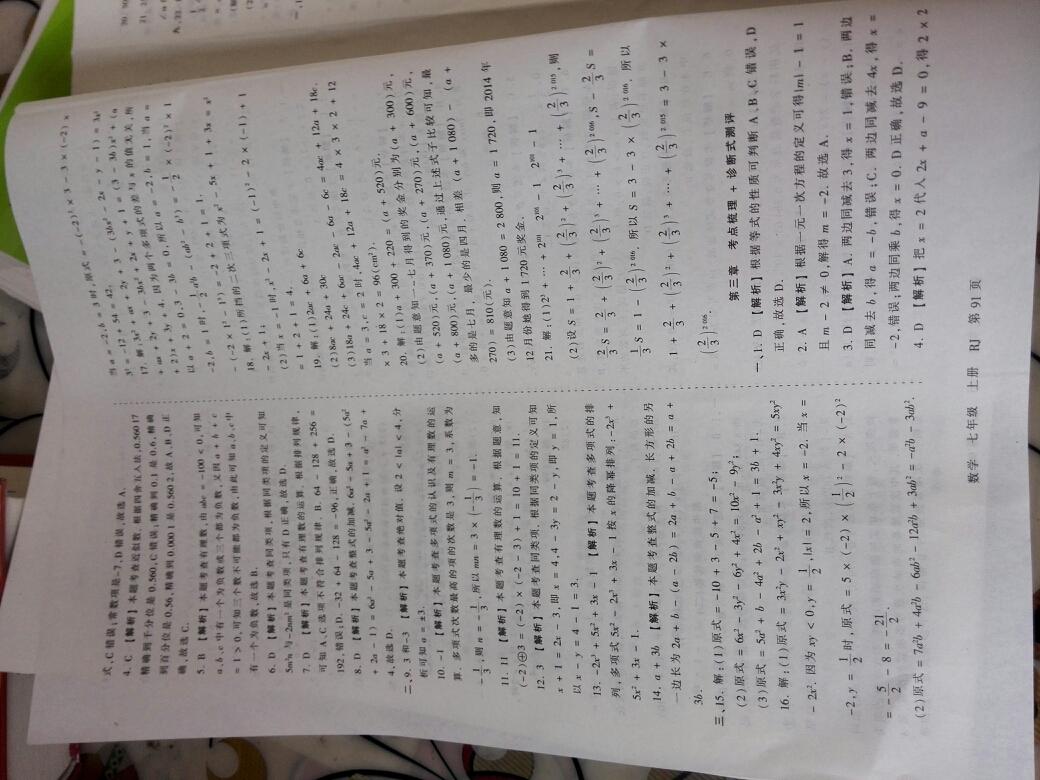 式,C错误;常数项是-7,D错误,故选A.
4. C 【解析】本题考查近似数. 根据四舍五入法,0.560 17
精确到千分位是0.560,C错误;精确到0.1是0.6,精确
到百分位是0.56,精确到0.000 1是0.560 2,故A、B、D正
确,故选C.
5. B 【解析】本题考查有理数,由abc = -100 < 0,可知
a,b,c中有一个为负数或三个都为负数,又因a + b + c
= 1 > 0,可知三个数不可能都为负数,由此可知a,b,c中
有一个为负数,故选B.
6. D 【解析】本题考查同类项,根据同类项的定义可知
5m²n与-2nm²是同类项,只有D正确,故选D.
7. D 【解析】本题考查有理数的运算. 根据排列规律,
可知A、C选项不符合排列规律. B. 64 - 128 + 256 =
192,错误;D. -32 + 64 - 128 = -96,正确,故选D.
8. D 【解析】本题考查整式的加减. 6a² - 5a + 3 - (5a²
+ 2a - 1) = 6a² - 5a + 3 - 5a² - 2a + 1 = a² - 7a +
4,故选D.
二、9. 3和-3 【解析】本题考查绝对值,设2 < |a| < 4,分
析可知a = ±3.
10. -1 【解析】本题考查多项式的认识及有理数的运
算. 多项式次数最高的项的次数是3,则m = 3,系数为
-1/3,则n = -1/3,所以mn = 3 × (-1/3) = -1.
11. 11 【解析】本题考查有理数的运算. 根据题意,知
(-2)⊕3 = (-2) × (-2 - 3) + 1 = 10 + 1 = 11.
12. 3 【解析】本题考查同类项. 根据同类项的定义可知
x + 1 = 2x - 3,即x = 4,4 - 3y = 2 - y,即y = 1,所
以x - y = 4 - 1 = 3.
13. -2x³ + 5x² + 3x - 1 【解析】本题考查多项式的排
列,多项式5x² - 2x³ + 3x - 1按x的降幂排列:-2x³ +
5x² + 3x - 1.
14. a + 3b 【解析】本题考查整式的加减. 长方形的另
一边长为2a + b - (a - 2b) = 2a + b - a + 2b = a +
3b.
三、15. 解:(1)原式 = -10 + 3 - 5 + 7 = -5;
(2)原式 = 6x² - 3y² - 6y² + 4x² = 10x² - 9y²;
(3)原式 = 5a² + b - 4a² + 2b - a² + 1 = 3b + 1.
16. 解:(1)原式 = 3x²y - 2x² + xy² - 3x²y + 4xy² = 5xy²
- 2x². 因为xy < 0,y = 1/2,|x| = 2,所以x = -2. 当x =
-2,y = 1/2时,原式 = 5 × (-2) × (1/2)² - 2 × (-2)²
= -5/2 - 8 = -21/2.
(2)原式 = 7a²b + 4a²b - 6ab² - 12a²b + 3ab² = -a²b - 3ab².
当a = -2,b = 3时,原式 = -(-2)² × 3 - 3 × (-2) ×
3² = -12 + 54 = 42.
17. 解:3x² + ax + 2y + 3 - (3bx² - 2x - y - 1) = 3x²
+ ax + 2y + 3 - 3bx² + 2x + y + 1 = (3 - 3b)x² + (a
+ 2)x + 3y + 4. 因为两个多项式的差与x的值无关,所
以a + 2 = 0,3 - 3b = 0,所以a = -2,b = 1,当a =
18. 解:(1)所挡的二次三项式为x² - 5x + 1 + 3x = x²
- 2x + 1;
(2)当x = -1时,x² - 2x + 1 = (-1)² - 2 × (-1) + 1
= 1 + 2 + 1 = 4.
19. 解:(1)2ac + 6a + 6c
(2)8ac + 24a + 30c
(3)18a + 24c + 6ac - 2ac - 6a - 6c = 4ac + 12a + 18c.
当a = 3,c = 2时,4ac + 12a + 18c = 4 × 3 × 2 + 12
× 3 + 18 × 2 = 96(cm²).
20. 解:(1)a + 300 + 220 = (a + 520)元.
(2)由题意知一~七月得到的奖金分别为(a + 300)元,
(a + 520)元,(a + 370)元,(a + 270)元,(a + 600)元,
(a + 800)元,(a + 1 080)元,通过上述式子比较可知,最
多的是七月,最少的是四月. 相差(a + 1 080) - (a +
270) = 810(元).
(3)由题意知a + 1 080 = 2 800,则a = 1 720,即2014年
12月份她得到1 720元奖金.
(2)设S = 1 + 2/3 + (2/3)² + (2/3)³ + … + (2/3)²⁰¹⁵,则
2/3 S = 2/3 + (2/3)² + (2/3)³ + … + (2/3)²⁰¹⁶,S - 2/3 S =
1/3 S = 1 - (2/3)²⁰¹⁶,所以S = 3 - 3 × (2/3)²⁰¹⁶. 所以
1 + 2/3 + (2/3)² + (2/3)³ + … + (2/3)²⁰¹⁵ = 3 - 3 ×
(2/3)²⁰¹⁶.
第三章 考点梳理 + 诊断式测评
一、1. D 【解析】根据等式的性质可判断A、B、C错误,D
正确,故选D.
2. A 【解析】根据一元一次方程的定义可得|m| - 1 = 1
且m - 2 ≠ 0,解得m = -2. 故选A.
3. D 【解析】A. 两边同减去3,得x = 1,错误;B. 两边
同减去b,得a = -b,错误;C. 两边同减去4x,得x =
-2,错误;两边同乘b,得x = 0. D正确,故选D.
4. D 【解析】把x = 2代入2x + a - 9 = 0,得2 × 2
数学 七年级 上册 RJ 第91页